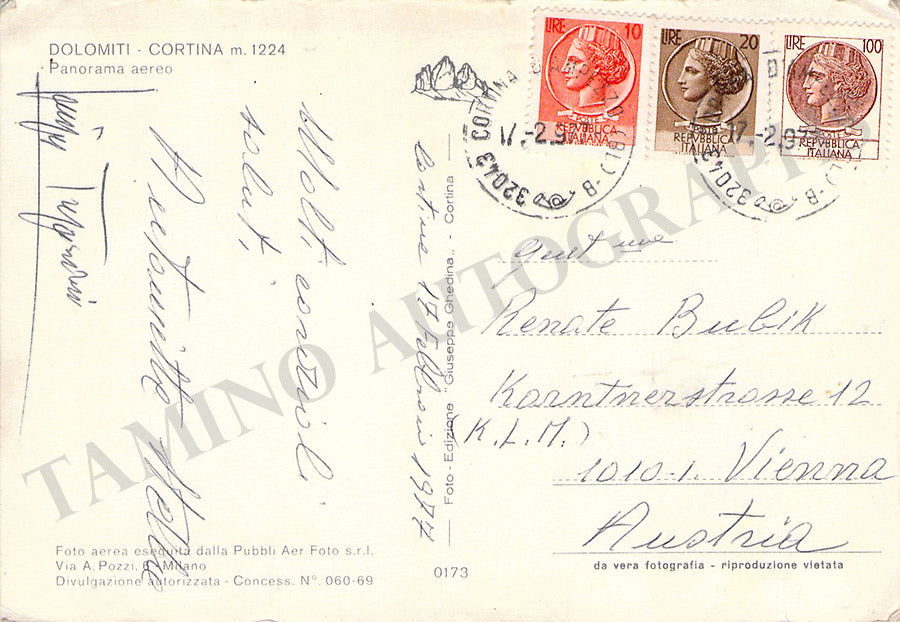 DOLOMITI - CORTINA m. 1224
Panorama aereo
Molti cordiali
saluti,
Cortina 17 febbraio 1977
Foto - Edizione "Giuseppe Ghedina" - Cortina
LIRE 10
POSTE
REPVBBLICA
ITALIANA
LIRE 20
POSTE
REPVBBLICA
ITALIANA
LIRE 100
POSTE
REPVBBLICA
ITALIANA
32043 CORTINA D'AMPEZZO (BL) - B
17.-2.9
32043
17.-2.9
(BL) - B
Gent.ma
Renate Bubik
Karntnerstrasse 12
(K.L.M.)
1010 1. Vienna
Austria
Foto aerea eseguita dalla Pubbli Aer Foto s.r.l.
Via A. Pozzi, 6 - Milano
Divulgazione autorizzata - Concess. N°. 060-69
0173
da vera fotografia - riproduzione vietata
TAMINO AUTOGRAPHS